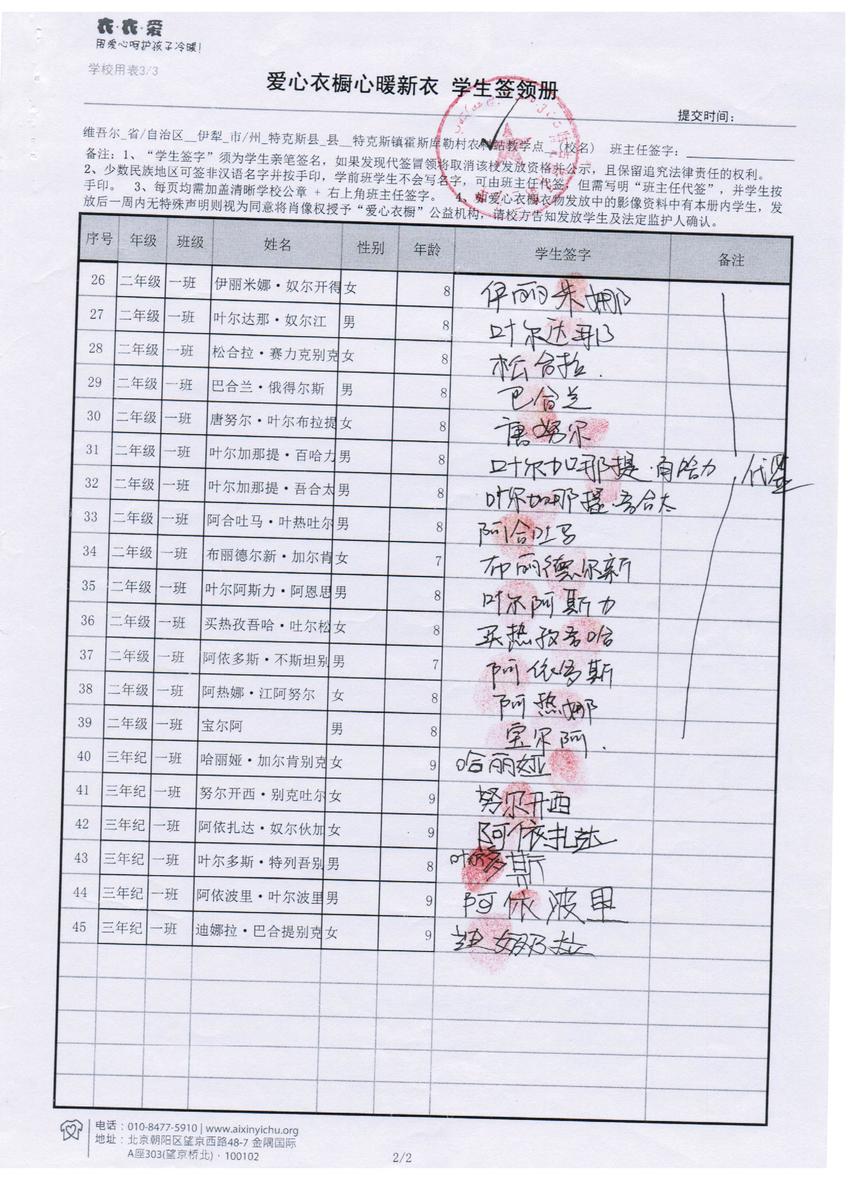 衣·衣·爱
用爱心呵护孩子冷暖!
学校用表3/3
爱心衣橱心暖新衣 学生签领册
提交时间:
维吾尔_省/自治区__伊犁_市/州_特克斯县_县__特克斯镇霍斯库勒村农 教学点__(校名) 班主任签字:
备注:1、“学生签字”须为学生亲笔签名,如果发现代签冒领将取消该校发放资格并公示,且保留追究法律责任的权利。
2、少数民族地区可签非汉语名字并按手印,学前班学生不会写名字,可由班主任代签,但需写明“班主任代签”,并学生按
手印。 3、每页均需加盖清晰学校公章 + 右上角班主任签字。 4、如爱心衣橱衣物发放中的影像资料中有本册内学生,发
放后一周内无特殊声明则视为同意将肖像权授予“爱心衣橱”公益机构,请校方告知发放学生及法定监护人确认。
序号 年级 班级 姓名 性别 年龄 学生签字 备注
26 二年级 一班 伊丽米娜·奴尔开得 女 8 伊丽米娜
27 二年级 一班 叶尔达那·奴尔江 男 8 叶尔达那
28 二年级 一班 松合拉·赛力克别克 女 8 松合拉.
29 二年级 一班 巴合兰·俄得尔斯 男 8 巴合兰
30 二年级 一班 唐努尔·叶尔布拉提 女 8 唐努尔
31 二年级 一班 叶尔加那提·百哈力 男 8 叶尔加那提·百哈力 代签
32 二年级 一班 叶尔加那提·吾合太 男 8 叶尔加那提·吾合太
33 二年级 一班 阿合吐马·叶热吐尔 男 8 阿合吐马
34 二年级 一班 布丽德尔新·加尔肯 女 7 布丽德尔新
35 二年级 一班 叶尔阿斯力·阿恩思 男 8 叶尔阿斯力
36 二年级 一班 买热孜吾哈·吐尔松 女 8 买热孜吾哈
37 二年级 一班 阿依多斯·不斯坦别 男 7 阿依多斯
38 二年级 一班 阿热娜·江阿努尔 女 8 阿热娜
39 二年级 一班 宝尔阿 男 8 宝尔阿.
40 三年纪 一班 哈丽娅·加尔肯别克 女 9 哈丽娅
41 三年纪 一班 努尔开西·别克吐尔 女 9 努尔开西
42 三年纪 一班 阿依扎达·奴尔伙加 女 9 阿依扎达
43 三年纪 一班 叶尔多斯·特列吾别 男 8 叶尔多斯
44 三年纪 一班 阿依波里·叶尔波里 男 9 阿依波里
45 三年纪 一班 迪娜拉·巴合提别克 女 9 迪娜拉
电话:010-8477-5910 | www.aixinyichu.org
地址:北京朝阳区望京西路48-7 金隅国际
A座303(望京桥北)·100102
2/2